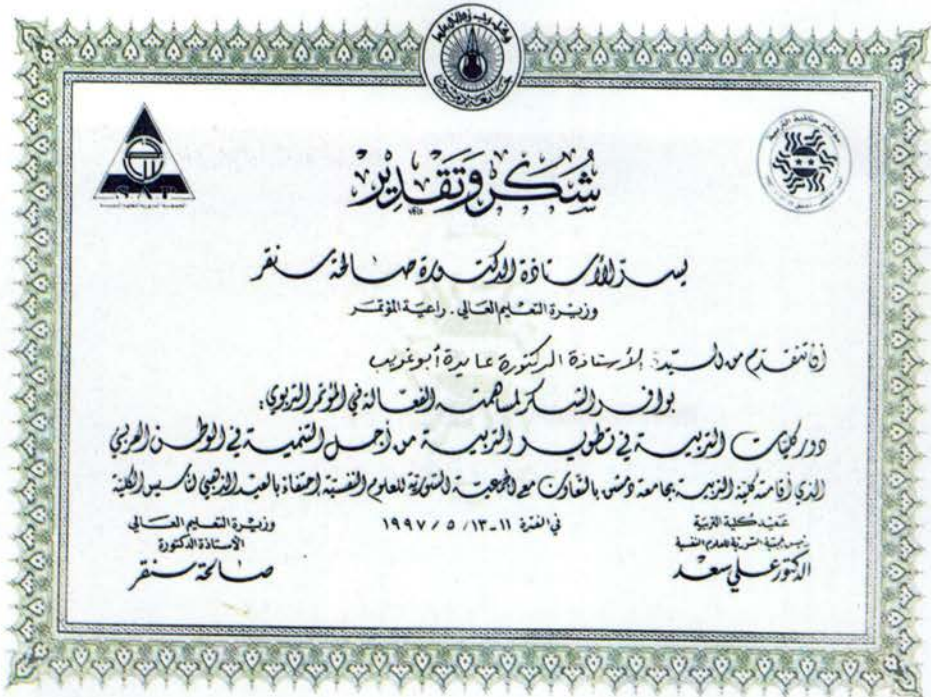 وقل رب زدني علما
جامعة دمشق
شكر وتقدير
يسر الأستاذة الدكتورة صالحة سنقر
وزيرة التعليم العالي - راعية المؤتمر
أن تتقدم من السيد: الأستاذة الدكتورة عايدة أبو غريب
بوافر الشكر لمساهمته الفعالة في المؤتمر التربوي:
دور كليات التربية في تطوير التربية من أجل التنمية في الوطن العربي
الذي أقامته كلية التربية بجامعة دمشق بالتعاون مع الجمعية السورية للعلوم النفسية احتفاءً بالعيد الذهبي لتأسيس الكلية
في الفترة ١١-١٣/٥/١٩٩٧
عميد كلية التربية
رئيس الجمعية السورية للعلوم النفسية
الدكتور علي سعد
وزيرة التعليم العالي
الأستاذة الدكتورة
صالحة سنقر